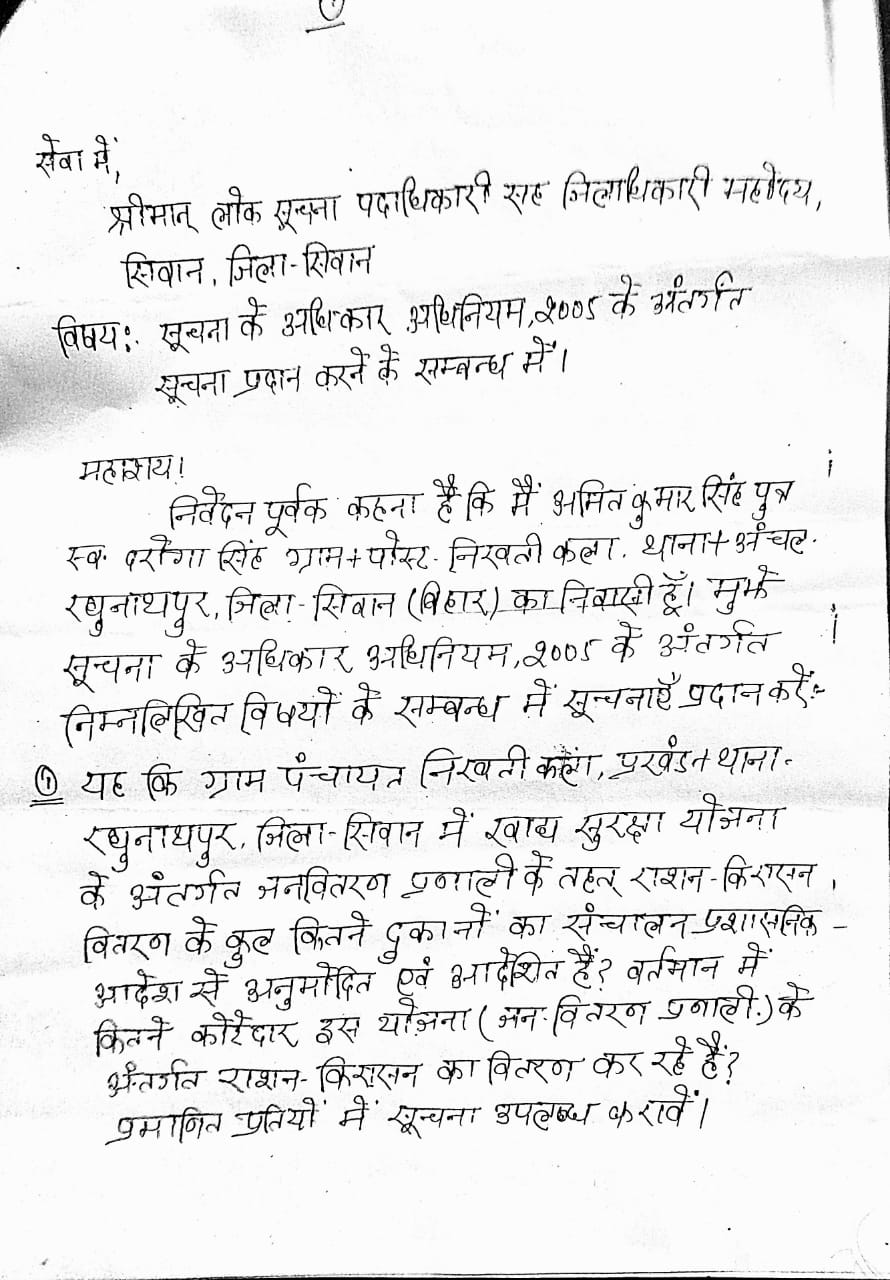 ①
सेवा में,
श्रीमान् लोक सूचना पदाधिकारी सह जिलाधिकारी महोदय,
सिवान, जिला-सिवान
विषय:- सूचना के अधिकार अधिनियम, २००५ के अंतर्गत
सूचना प्रदान करने के सम्बन्ध में।
महाशय!
निवेदन पूर्वक कहना है कि मैं अमित कुमार सिंह पुत्र
स्व. दरोगा सिंह ग्राम+पोस्ट- निखती कला. थाना+अंचल-
रघुनाथपुर, जिला-सिवान (बिहार) का निवासी हूँ। मुझे
सूचना के अधिकार अधिनियम, २००५ के अंतर्गत
निम्नलिखित विषयों के सम्बन्ध में सूचनाएँ प्रदान करें:-
① यह कि ग्राम पंचायत निखती कला, प्रखंड+थाना-
रघुनाथपुर, जिला-सिवान में खाद्य सुरक्षा योजना
के अंतर्गत जनवितरण प्रणाली के तहत् राशन-किरासन
वितरण के कुल कितने दुकानों का संचालन प्रशासनिक-
आदेश से अनुमोदित एवं आदेशित हैं? वर्तमान में
कितने कोटेदार इस योजना (जन-वितरण प्रणाली.) के
अंतर्गत राशन-किरासन का वितरण कर रहे हैं?
प्रमानित प्रतियों में सूचना उपलब्ध करावें।